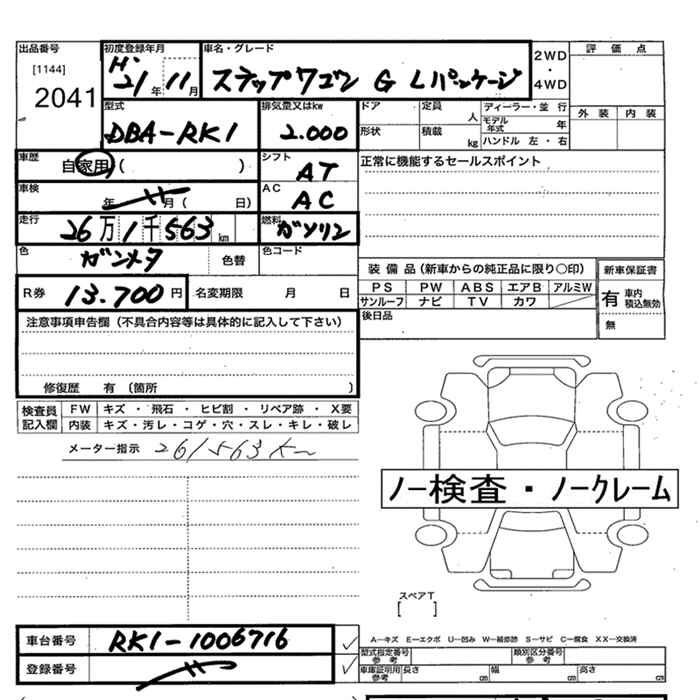 出品番号 初度登録年月 車名・グレード 2WD 評価点
[1144] H. 21年 11月 ステップワゴン G Lパッケージ ・
2041 4WD 外装 内装
型式 排気量又はkw ドア 定員 人 ディーラー・並行
DBA-RK1 2.000 モデル年式 年
形状 積載 kg ハンドル 左・右
車歴 自家用 ( ) シフト AT 正常に機能するセールスポイント
車検 年 月 ( 日) AC AC
走行 26万1千563km 燃料 ガソリン
色 ガンメタ 色替 色コード
装備品(新車からの純正品に限り○印) 新車保証書
R券 13.700円 名変期限 月 日 PS PW ABS エアB アルミW 有 車内積込無効
サンルーフ ナビ TV カワ
注意事項申告欄 (不具合内容等は具体的に記入して下さい) 後日品 無
修復歴 有 (箇所 )
検査員記入欄 FW キズ ・ 飛石 ・ ヒビ割 ・ リペア跡 ・ X要
内装 キズ・汚レ・コゲ・穴・スレ・キレ・破レ
メーター指示 261563K
ノー検査・ノークレーム
スペアT
[ ]
車台番号 RK1-1006716
A―キズ E―エクボ U―凹み W―補修跡 S―サビ C―腐食 XX―交換済
型式指定番号 参考 類別区分番号 参考
登録番号 車庫証明用 参考 長さ cm 幅 cm 高さ cm